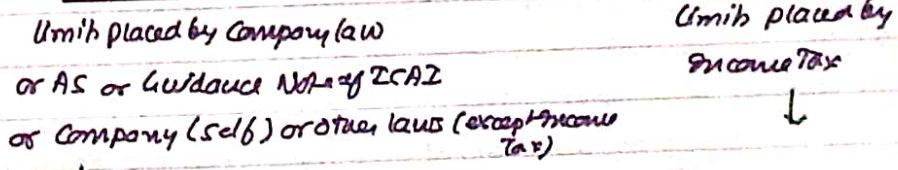 Limit placed by Company law
or AS or Guidance Note of ICAI
or Company (Self) or other laws (except Income
Tax)
Limit placed by
Income Tax
↓